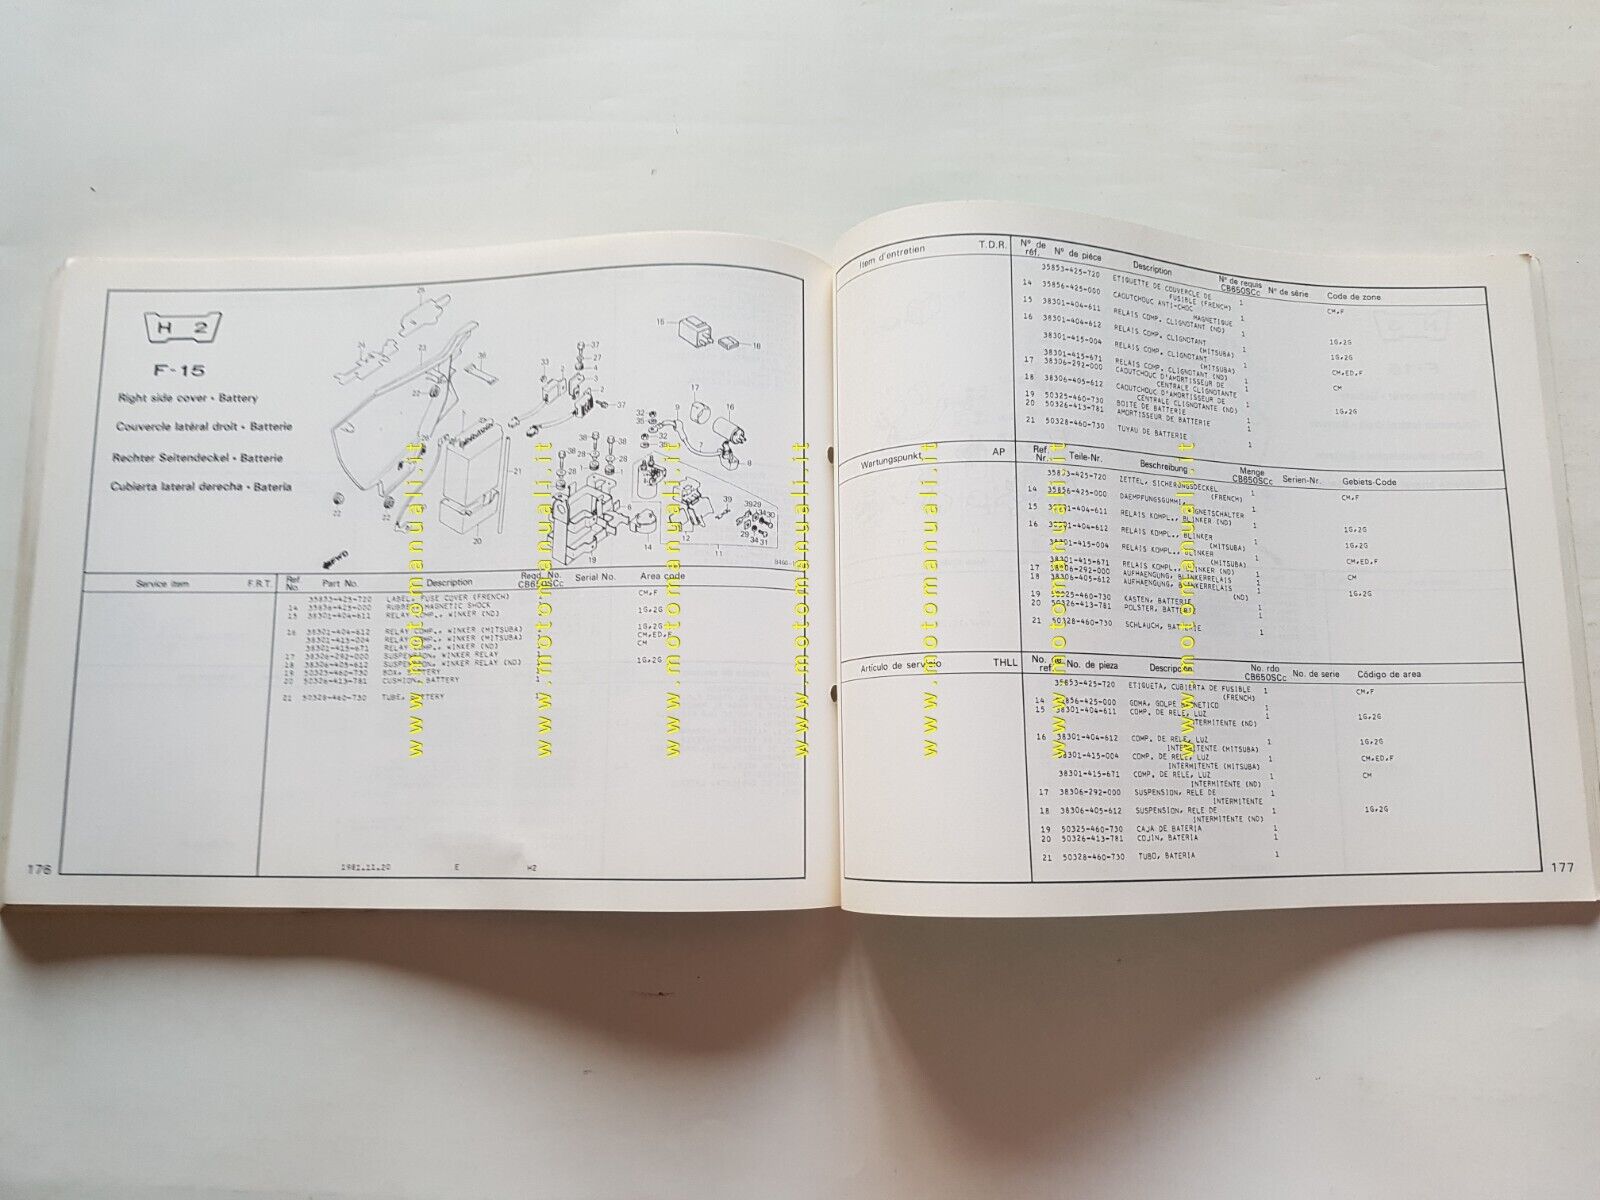 H 2
F-15
Right side cover • Battery
Couvercle latéral droit • Batterie
Rechter Seitendeckel • Batterie
Cubierta lateral derecha • Bateria
FWD
Service item F.R.T. Ref. No. Part No. Description Reqd. No. CB650SCc Serial No. Area code
35853-425-720 LABEL, FUSE COVER (FRENCH) CM,F
14 35856-425-000 MAGNETIC SHOCK
15 38301-404-611 RELAY COMP., WINKER (ND) 1G,2G
16 38301-404-612 RELAY COMP., WINKER (MITSUBA) 1G,2G
38301-415-004 RELAY COMP., WINKER (MITSUBA) CM,ED,F
38301-415-671 RELAY COMP., WINKER (ND) CM
17 38306-292-000 SUSPENSION, WINKER RELAY
18 38306-405-612 SUSPENSION, WINKER RELAY (ND) 1G,2G
19 50325-460-730 BOX, BATTERY
20 50326-413-781 CUSHION, BATTERY
21 50328-460-730 TUBE, BATTERY
176
1981.11.20 E H2
Item d'entretien T.D.R. N° de réf. N° de pièce Description N° de requis CB650SCc N° de série Code de zone
35853-425-720 ETIQUETTE DE COUVERCLE DE FUSIBLE (FRENCH) 1 CM,F
14 35856-425-000 CAOUTCHOUC ANTI-CHOC MAGNETIQUE 1
15 38301-404-611 RELAIS COMP. CLIGNOTANT (ND) 1 1G,2G
16 38301-404-612 RELAIS COMP. CLIGNOTANT (MITSUBA) 1 1G,2G
38301-415-004 RELAIS COMP. CLIGNOTANT (MITSUBA) 1 CM,ED,F
38301-415-671 RELAIS COMP. CLIGNOTANT (ND) 1 CM
17 38306-292-000 CAOUTCHOUC D'AMORTISSEUR DE CENTRALE CLIGNOTANTE 1
18 38306-405-612 CAOUTCHOUC D'AMORTISSEUR DE CENTRALE CLIGNOTANTE (ND) 1 1G,2G
19 50325-460-730 BOITE DE BATTERIE 1
20 50326-413-781 AMORTISSEUR DE BATTERIE 1
21 50328-460-730 TUYAU DE BATTERIE 1
Wartungspunkt AP Ref. Nr. Teile-Nr. Beschreibung Menge CB650SCc Serien-Nr. Gebiets-Code
35853-425-720 ZETTEL, SICHERUNGSDECKEL (FRENCH) 1 CM,F
14 35856-425-000 DAEMPFUNGSGUMMI, MAGNETSCHALTER 1
15 38301-404-611 RELAIS KOMPL., BLINKER (ND) 1 1G,2G
16 38301-404-612 RELAIS KOMPL., BLINKER (MITSUBA) 1 1G,2G
38301-415-004 RELAIS KOMPL., BLINKER (MITSUBA) 1 CM,ED,F
38301-415-671 RELAIS KOMPL., BLINKER (ND) 1 CM
17 38306-292-000 AUFHAENGUNG, BLINKERRELAIS 1
18 38306-405-612 AUFHAENGUNG, BLINKERRELAIS (ND) 1 1G,2G
19 50325-460-730 KASTEN, BATTERIE 1
20 50326-413-781 POLSTER, BATTERIE 1
21 50328-460-730 SCHLAUCH, BATTERIE 1
Artículo de servicio THLL No. de ref. No. de pieza Descripción No. rdo CB650SCc No. de serie Código de area
35853-425-720 ETIQUETA, CUBIERTA DE FUSIBLE (FRENCH) 1 CM,F
14 35856-425-000 GOMA, GOLPE MAGNETICO 1
15 38301-404-611 COMP. DE RELE, LUZ INTERMITENTE (ND) 1 1G,2G
16 38301-404-612 COMP. DE RELE, LUZ INTERMITENTE (MITSUBA) 1 1G,2G
38301-415-004 COMP. DE RELE, LUZ INTERMITENTE (MITSUBA) 1 CM,ED,F
38301-415-671 COMP. DE RELE, LUZ INTERMITENTE (ND) 1 CM
17 38306-292-000 SUSPENSION, RELE DE INTERMITENTE 1
18 38306-405-612 SUSPENSION, RELE DE INTERMITENTE (ND) 1 1G,2G
19 50325-460-730 CAJA DE BATERIA 1
20 50326-413-781 COJIN, BATERIA 1
21 50328-460-730 TUBO, BATERIA 1
177
www.motomanuali.it
www.motomanuali.it
www.motomanuali.it
www.motomanuali.it
www.motomanuali.it
www.motomanuali.it
www.motomanuali.it